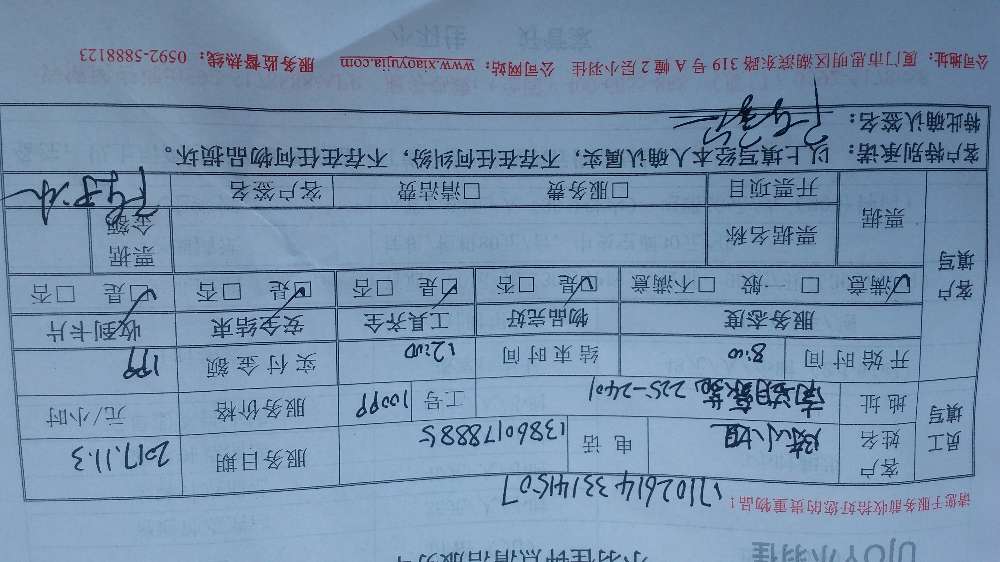 UJOY小羽佳
小羽佳钟点清洁服务卡
请您于服务前收拾好您的贵重物品！
17102614331441507
员工填写
客户姓名 陈小姐 电话 13860178885 服务日期 2017.11.3
地址 225-2401 工号 服务价格 元/小时
开始时间 8:00 结束时间 12:00 实付金额 199
客户填写
服务态度 物品完好 工具齐全 安全结束 收到卡片
☑满意 □一般 □不满意 ☑是 □否 ☑是 □否 ☑是 □否 ☑是 □否
票据 票据名称 票据金额
开票项目 □服务费 □清洁费 客户签名
客户特别承诺：以上填写经本人确认属实，不存在任何纠纷，不存在任何物品损坏。
特此确认签名：
公司地址：厦门市思明区湖滨东路319号A幢2层小羽佳 公司网站：www.xiaoyujia.com 服务监督热线：0592-5888123